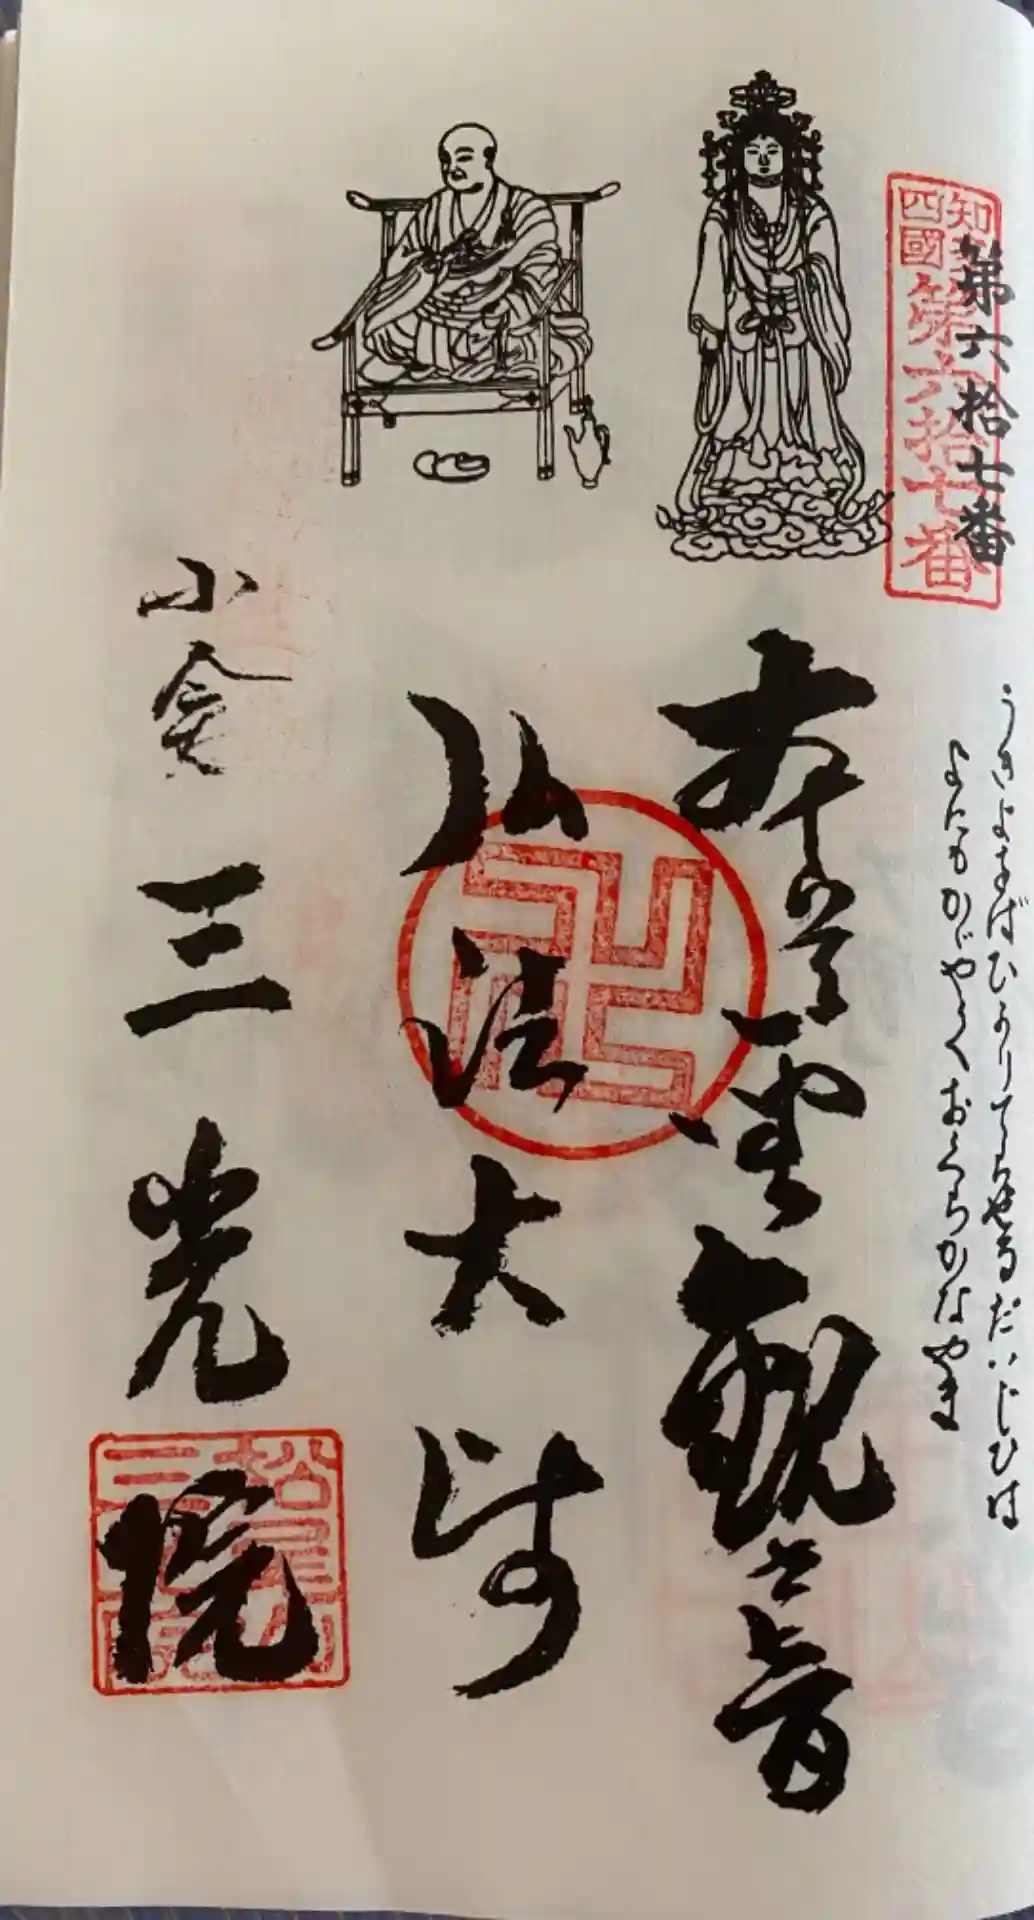 第六拾七番
知多
四國
第六拾七番
うきよをばひかりてらせるだいじひは
よにもかゞやくおくらかなやま
本尊聖観世音
弘法大師
小倉 三光院
松尾山
三光院